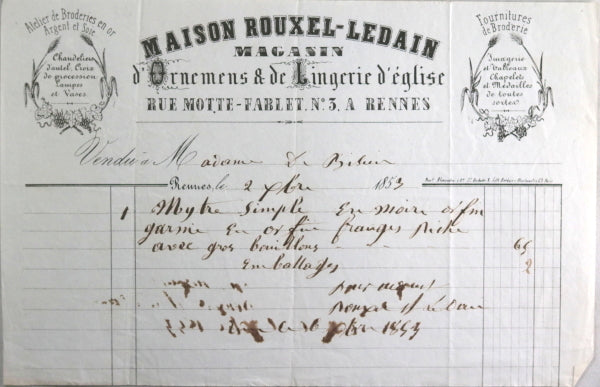 Atelier de Broderies en or
Argent et Soie
Chandeliers
d'autel, Croix
de procession
Lampes
et Vases
MAISON ROUXEL-LEDAIN
MAGASIN
d'Ornemens & de Lingerie d'église
RUE MOTTE-FABLET, N° 3, A RENNES
Fournitures
de Broderie
Imagerie
et Tableaux
Chapelets
et Médailles
de toutes
sortes
Vendu à Madame De
Rennes, le 2 xbre 1853
1 Mytre simple en moire or fin
garnie en or fin franges riche
avec gros bouillons 65
Emballages 2
pour acquit
Rouxel Ledain
xbre 1853